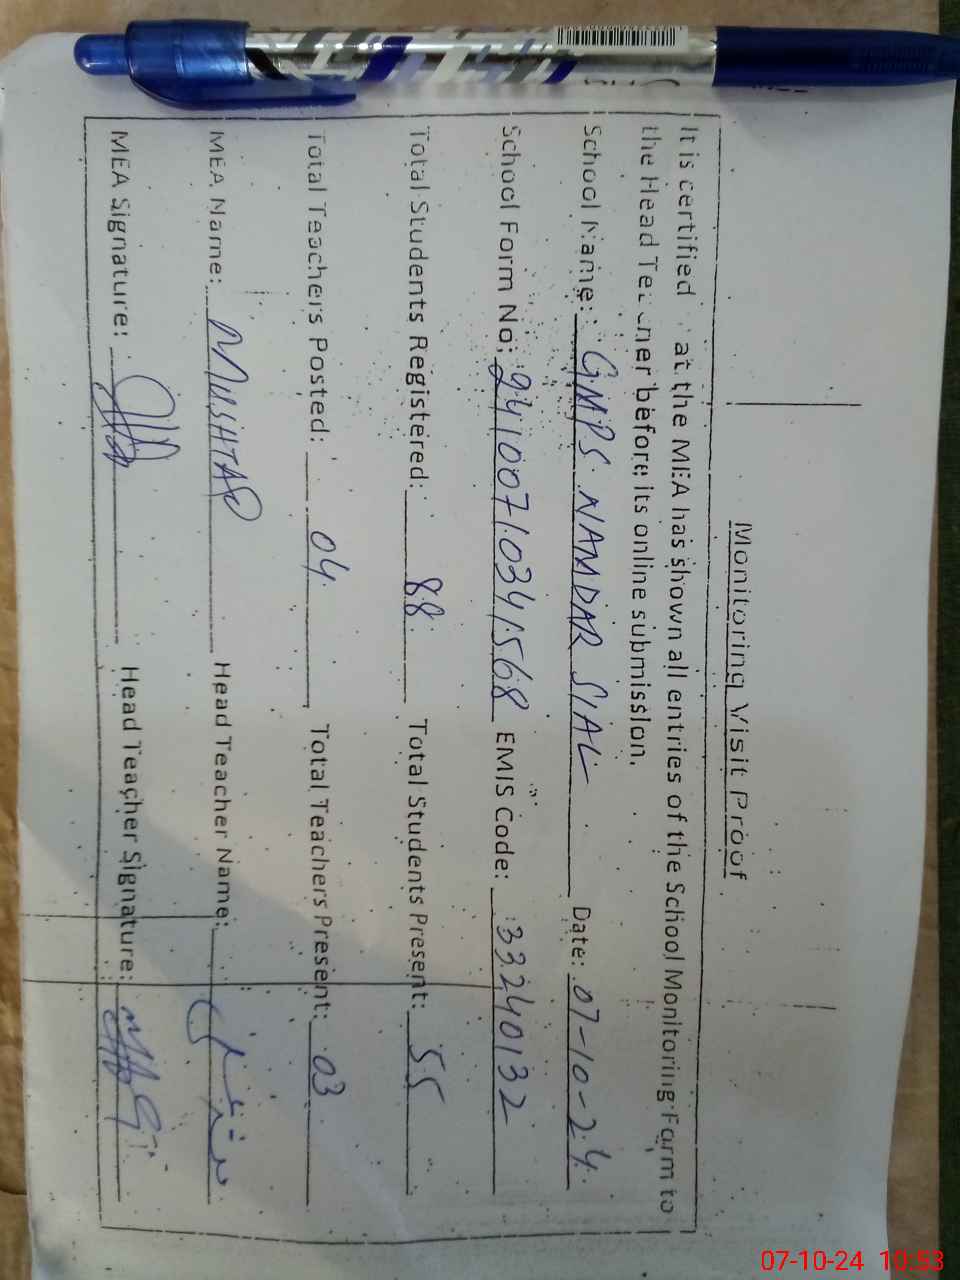 Monitoring Visit Proof
It is certified at the MEA has shown all entries of the School Monitoring Form to
the Head Teacher before its online submission.
School Name: GMPS NAMDAR SIAL Date: 07-10-24
School Form No: 9410071.0341568 EMIS Code: 33240132
Total Students Registered: 88 Total Students Present: 55
Total Teachers Posted: 04 Total Teachers Present: 03
MEA Name: MUSHTAQ Head Teacher Name:
MEA Signature: Head Teacher Signature:
07-10-24 10:53